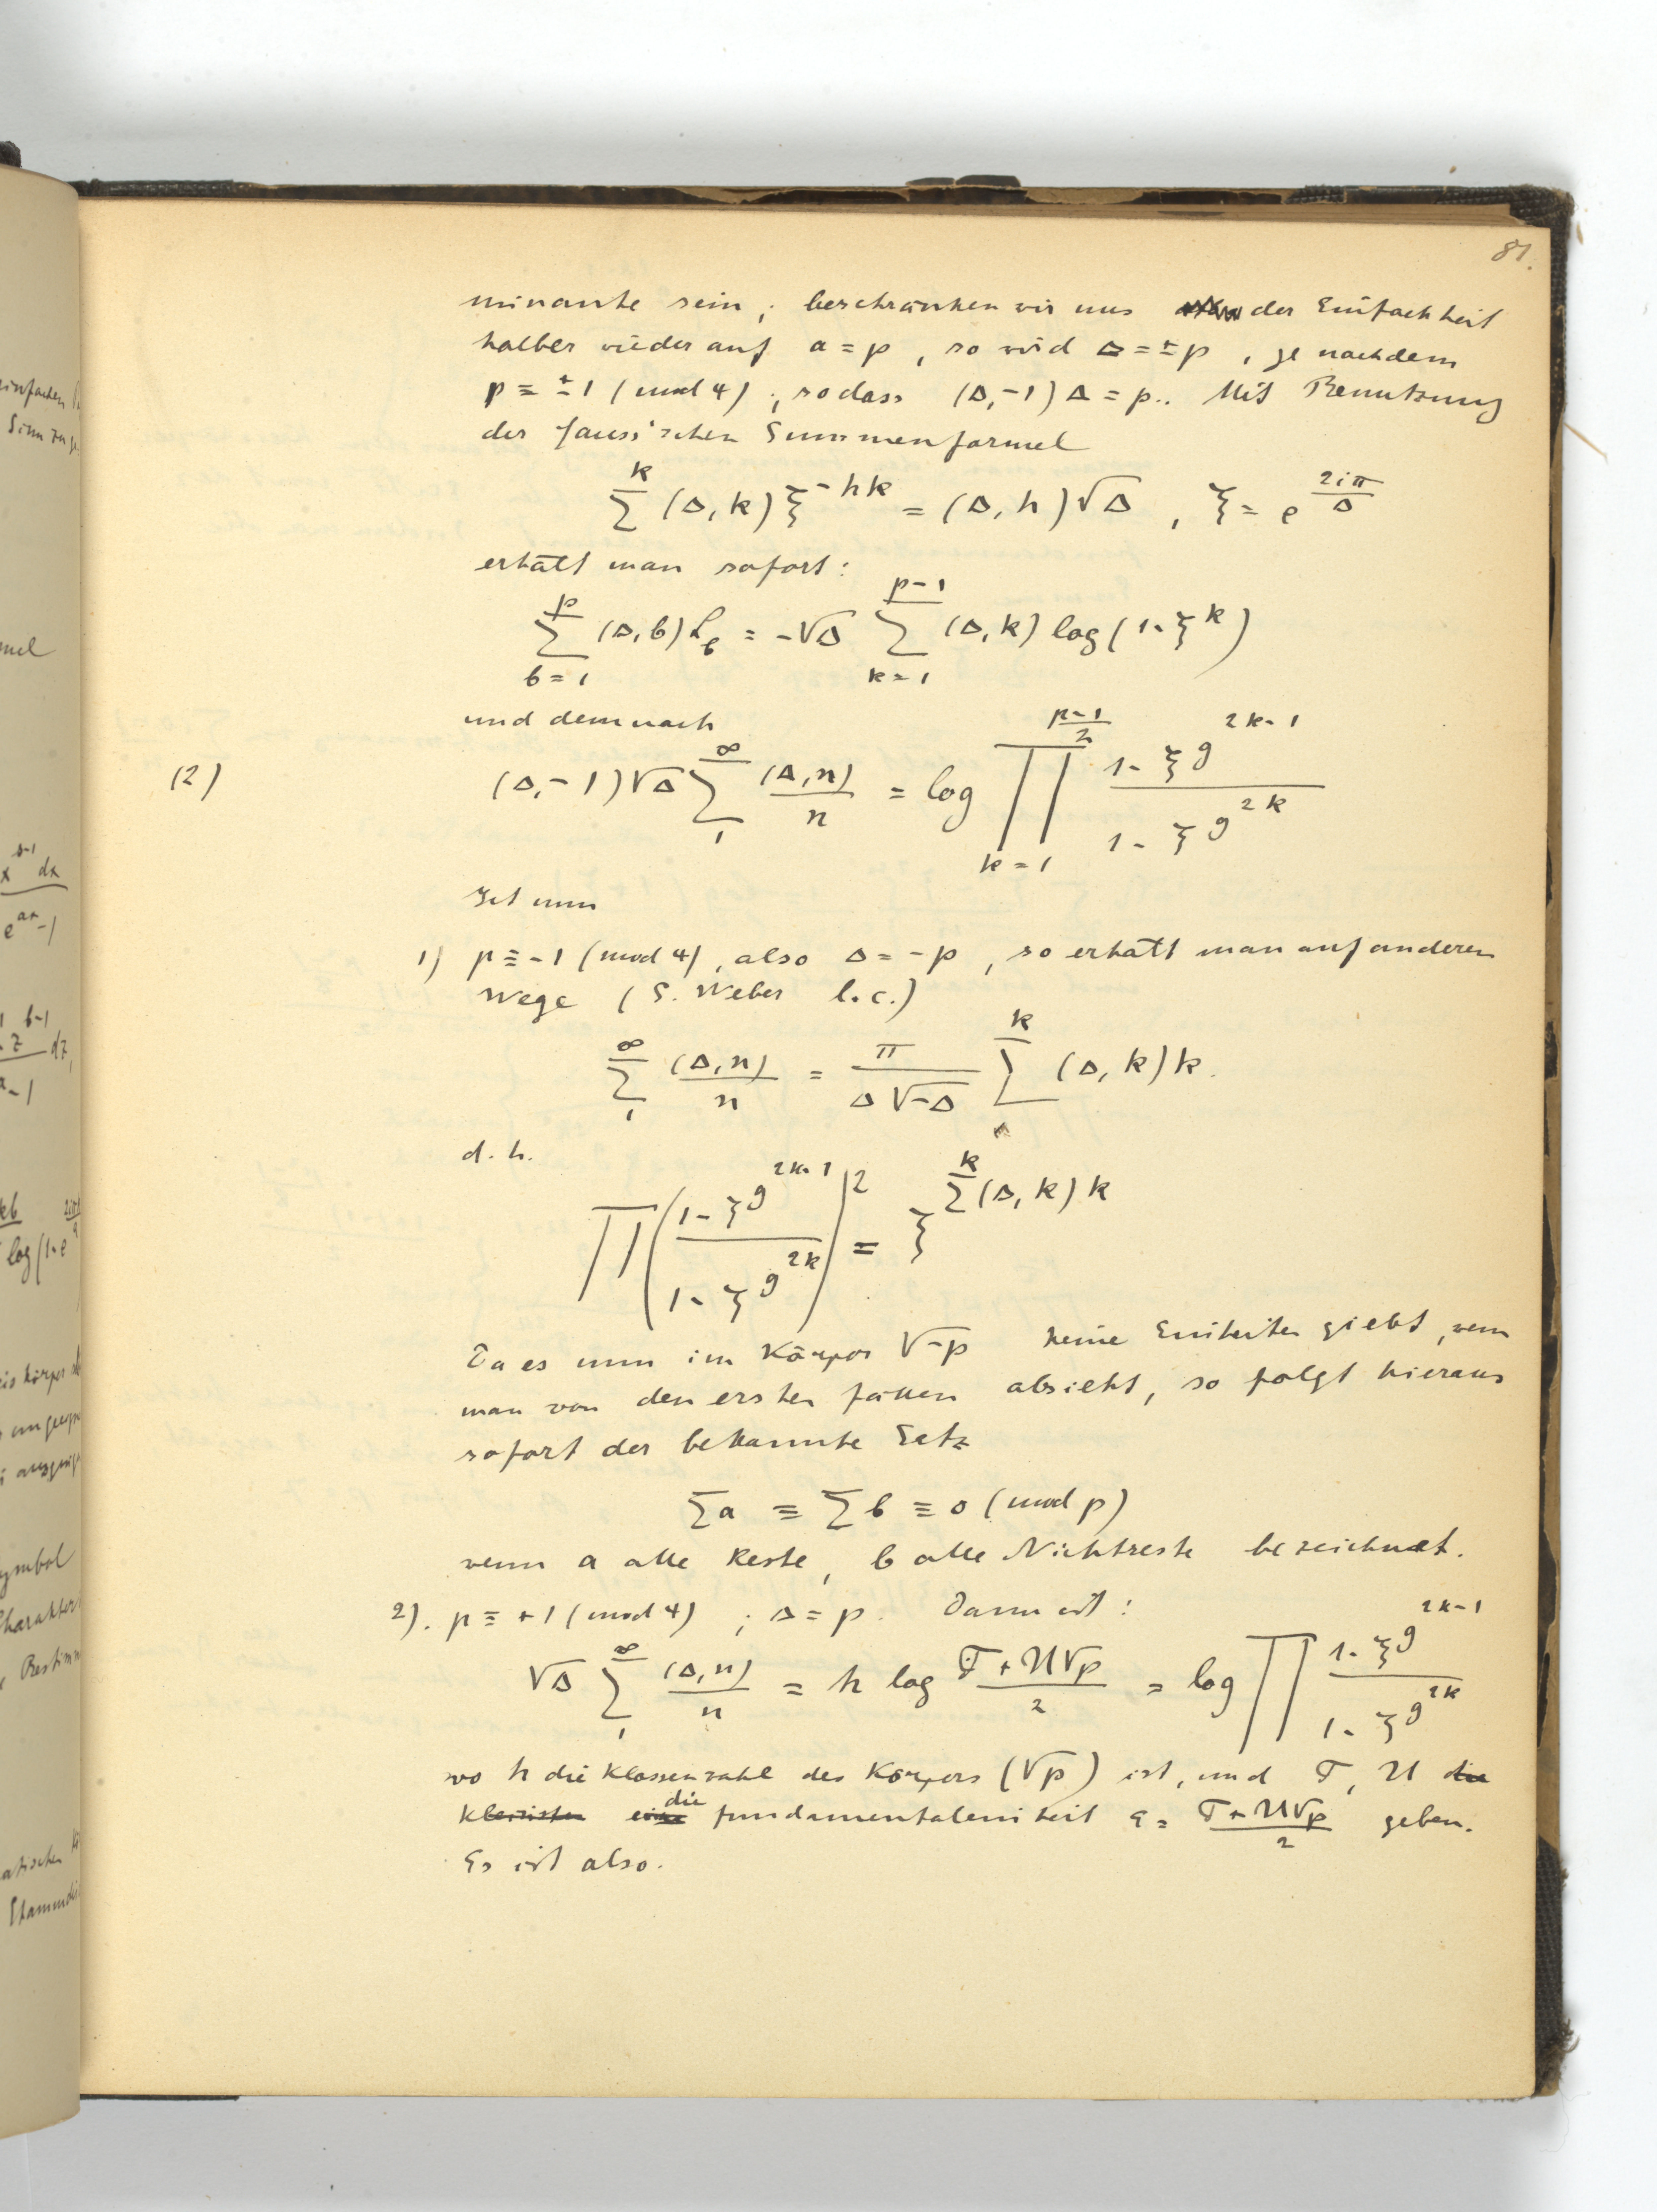 81.
minante sein; beschränken wir uns der Einfachheit
halber wieder auf a = p, so wird Δ = ±p, je nachdem
p ≡ ±1 (mod 4); sodass (Δ,-1) Δ = p.. Mit Benutzung
der Gauss'schen Summenformel
∑^k (Δ,k) ξ^{-hk} = (Δ,h)√Δ , ξ = e^{2iπ/Δ}
erhält man sofort:
∑_{b=1}^{p} (Δ,b) L_b = -√Δ ∑_{k=1}^{p-1} (Δ,k) log(1-ξ^k)
und demnach
(2) (Δ,-1)√Δ ∑_1^∞ (Δ,n)/n = log ∏_{k=1}^{(p-1)/2} (1-ξ^{g^{2k-1}})/(1-ξ^{g^{2k}})
Ist nun
1) p ≡ -1 (mod 4), also Δ = -p, so erhält man auf anderen
Wege (S. Weber l.c.)
∑_1^∞ (Δ,n)/n = π/(Δ√-Δ) ∑^k (Δ,k) k.
d.h.
∏ ((1-ξ^{g^{2k-1}})/(1-ξ^{g^{2k}}))^2 = ξ^{∑^k (Δ,k) k}
Da es nun im Körper √-p keine Einheiten giebt, wenn
man von den ersten Fällen absieht, so folgt hieraus
sofort der bekannte Satz
∑a ≡ ∑b ≡ 0 (mod p)
wenn a alle Reste, b alle Nichtreste bezeichnet.
2). p ≡ +1 (mod 4) ; Δ = p. Dann ist:
√Δ ∑_1^∞ (Δ,n)/n = h log (T+U√p)/2 = log ∏ (1-ξ^{g^{2k-1}})/(1-ξ^{g^{2k}})
wo h die Klassenzahl des Körpers (√p) ist, und T, U die
kleinsten die fundamentaleinheit ε = (T+U√p)/2 geben.
Es ist also.